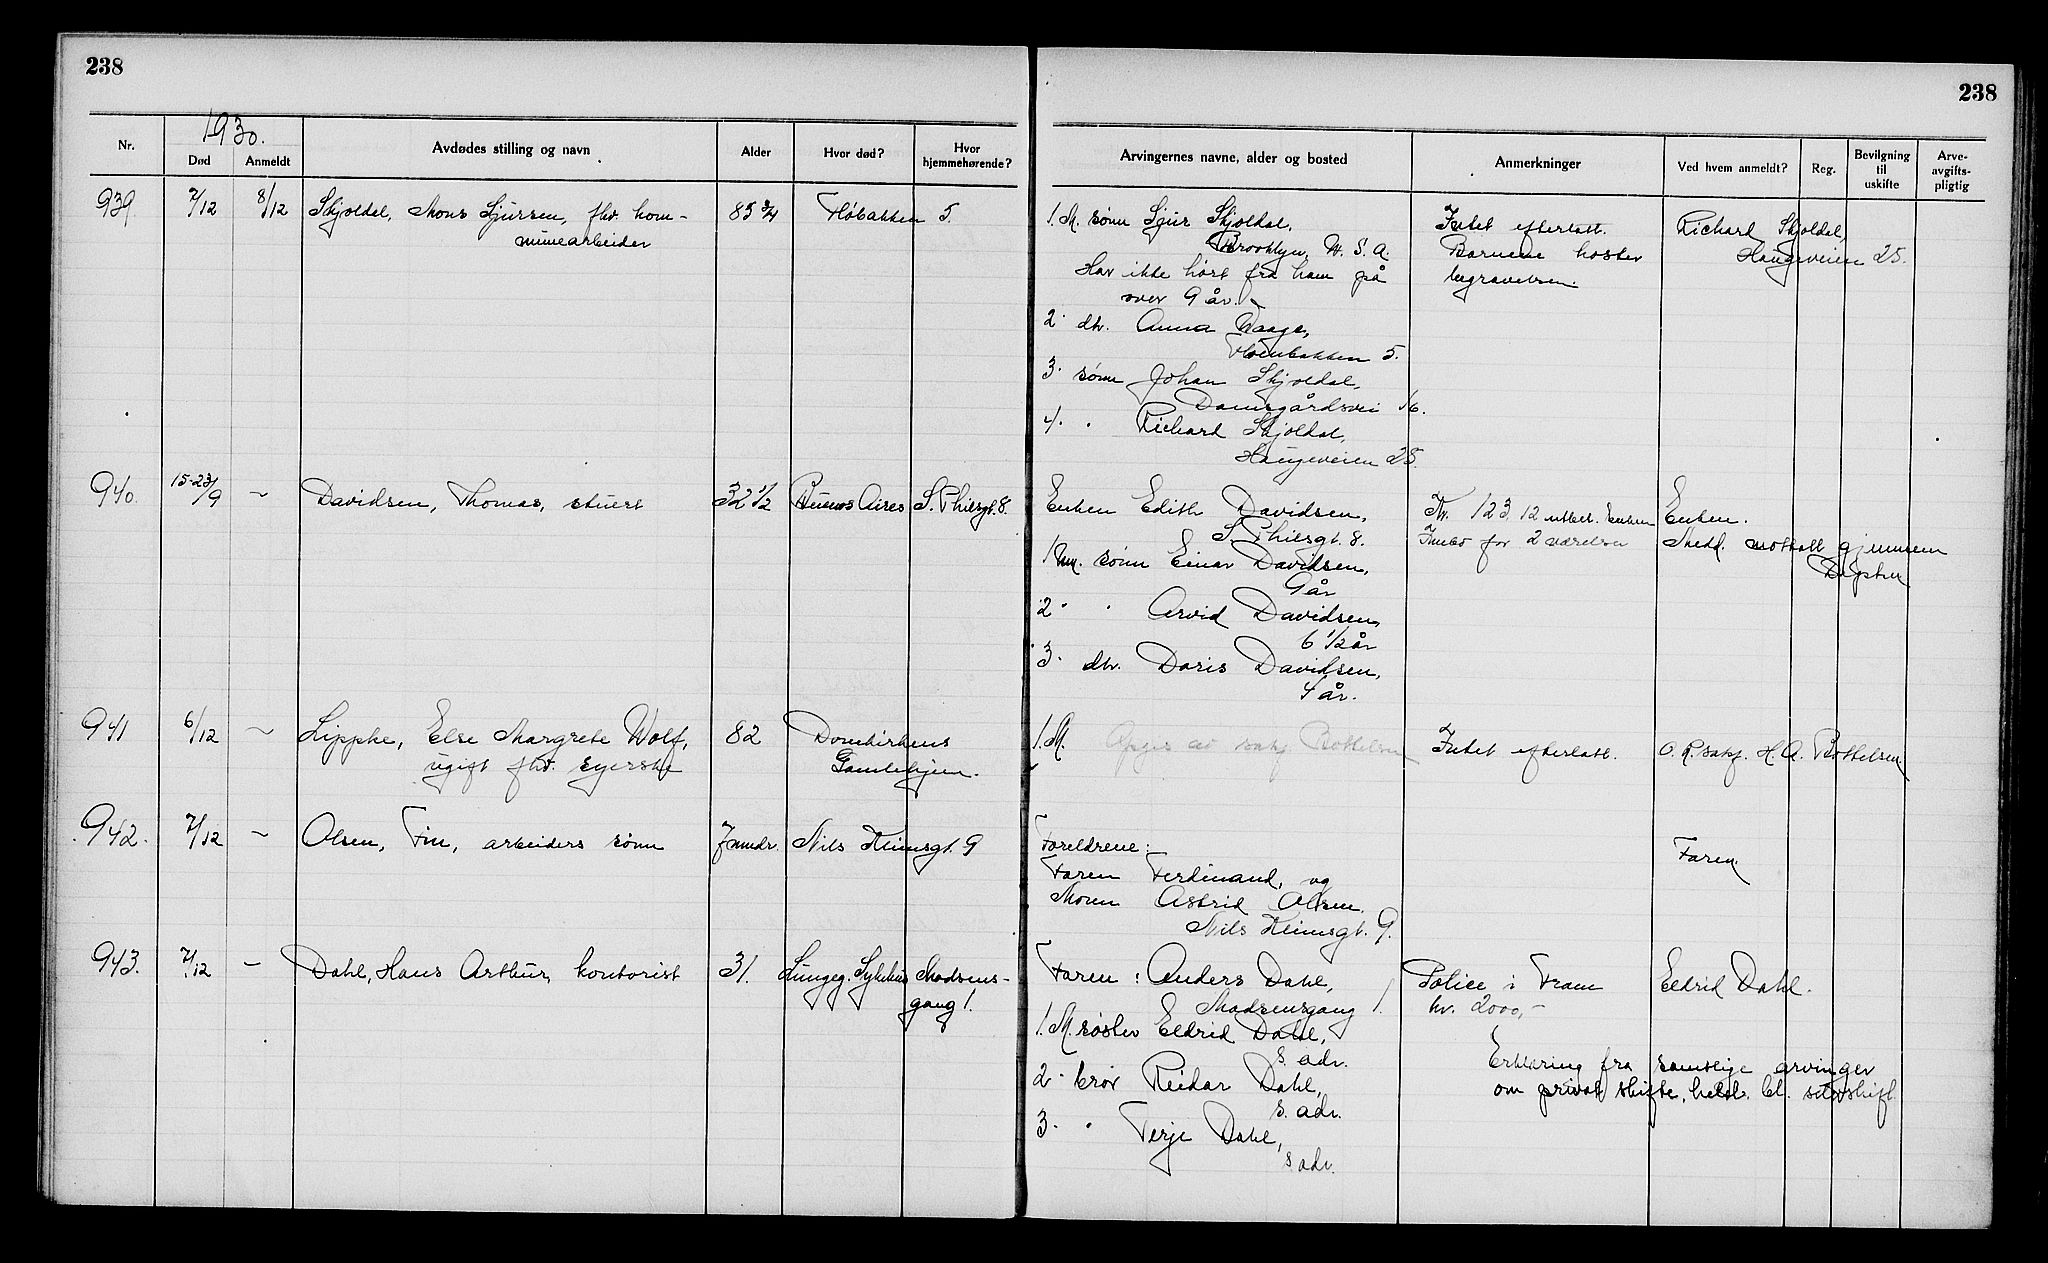 238
238
1930.
Nr.
Død
Anmeldt
Avdødes stilling og navn
Alder
Hvor død?
Hvor hjemmehørende?
Arvingernes navne, alder og bosted
Anmerkninger
Ved hvem anmeldt?
Reg.
Bevilgning til uskifte
Arve-avgifts-pligtig
939 7/12 8/12 Skjoldal, Mons Sjursen, fhv. kom-
munearbeider
85 3/4
Fløbakken 5.
1. M. sønn Sjur Skjoldal,
Brooklyn, U. S. A.
Har ikke hørt fra ham på
over 9 år.
2. dtr. Anna Waage,
Fløenbakken 5.
3. sønn Johan Skjoldal,
Damsgårdsvei 16.
4. " Richard Skjoldal,
Haugeveien 25.
Intet efterlatt.
Barnene koster
begravelsen.
Richard Skjoldal,
Haugeveien 25.
940. 15-23/9 — Davidsen, Thomas, stuert
32 1/2
Buenos Aires
S. Thiisgt. 8.
Enken Edith Davidsen,
S. Thiisgt. 8.
1. M. sønn Einar Davidsen,
9 år
2. " Arvid Davidsen,
6 1/2 år
3. dtr. Doris Davidsen,
4 år.
Kr. 123.12 utbet. Enken
Innbo for 2 værelser
Enken.
Medd. mottatt gjennem
941 6/12 — Lippke, Else Margrete Wolf,
ugift fhv. syerske
82
Domkirkens
Gamlehjem.
1. M. Opgis av saksf. Bottelsen
Intet efterlatt.
O. R. saksf. H. A. Bottelsen.
942. 7/12 — Olsen, Finn, arbeiders sønn
7 mndr.
Nils Heimsgt. 9
Foreldrene:
Faren Ferdinand, og
Moren Astrid Olsen.
Nils Heimsgt. 9.
Faren.
943. 7/12 — Dahl, Hans Arthur, kontorist
31.
Lungeg. Sykehus
Madsens-
gang 1.
Faren: Anders Dahl,
Madsensgang 1.
1. M. søster Eldrid Dahl,
s. adr.
2. bror Reidar Dahl,
s. adr.
3. " Terje Dahl,
s. adr.
Police i Fram
kr. 2000,-
Eldrid Dahl.
Erklæring fra samtlige arvinger
om privat skifte,